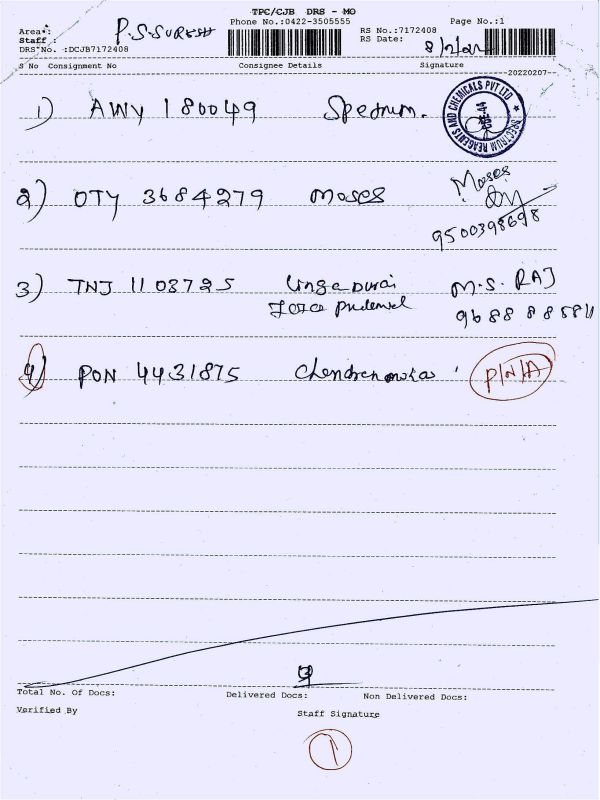 TPC/CJB DRS - MO
Phone No.:0422-3505555 Page No.:1
Area : P.S.SURESH
Staff :
DRS No. :DCJB7172408
RS No.:7172408
RS Date: 8/2/22
S No Consignment No Consignee Details Signature
20220207
1) AWY 180049 Spectrum.
SPECTRUM REAGENTS AND CHEMICALS PVT LTD
2) OTY 3684279 Moses Moses
9500398698
3) TNJ 1108725 Lingadurai M.S. RAJ
Force
4) PON 4431875 P/N/A
Total No. Of Docs: Delivered Docs: Non Delivered Docs:
Verified By Staff Signature
1